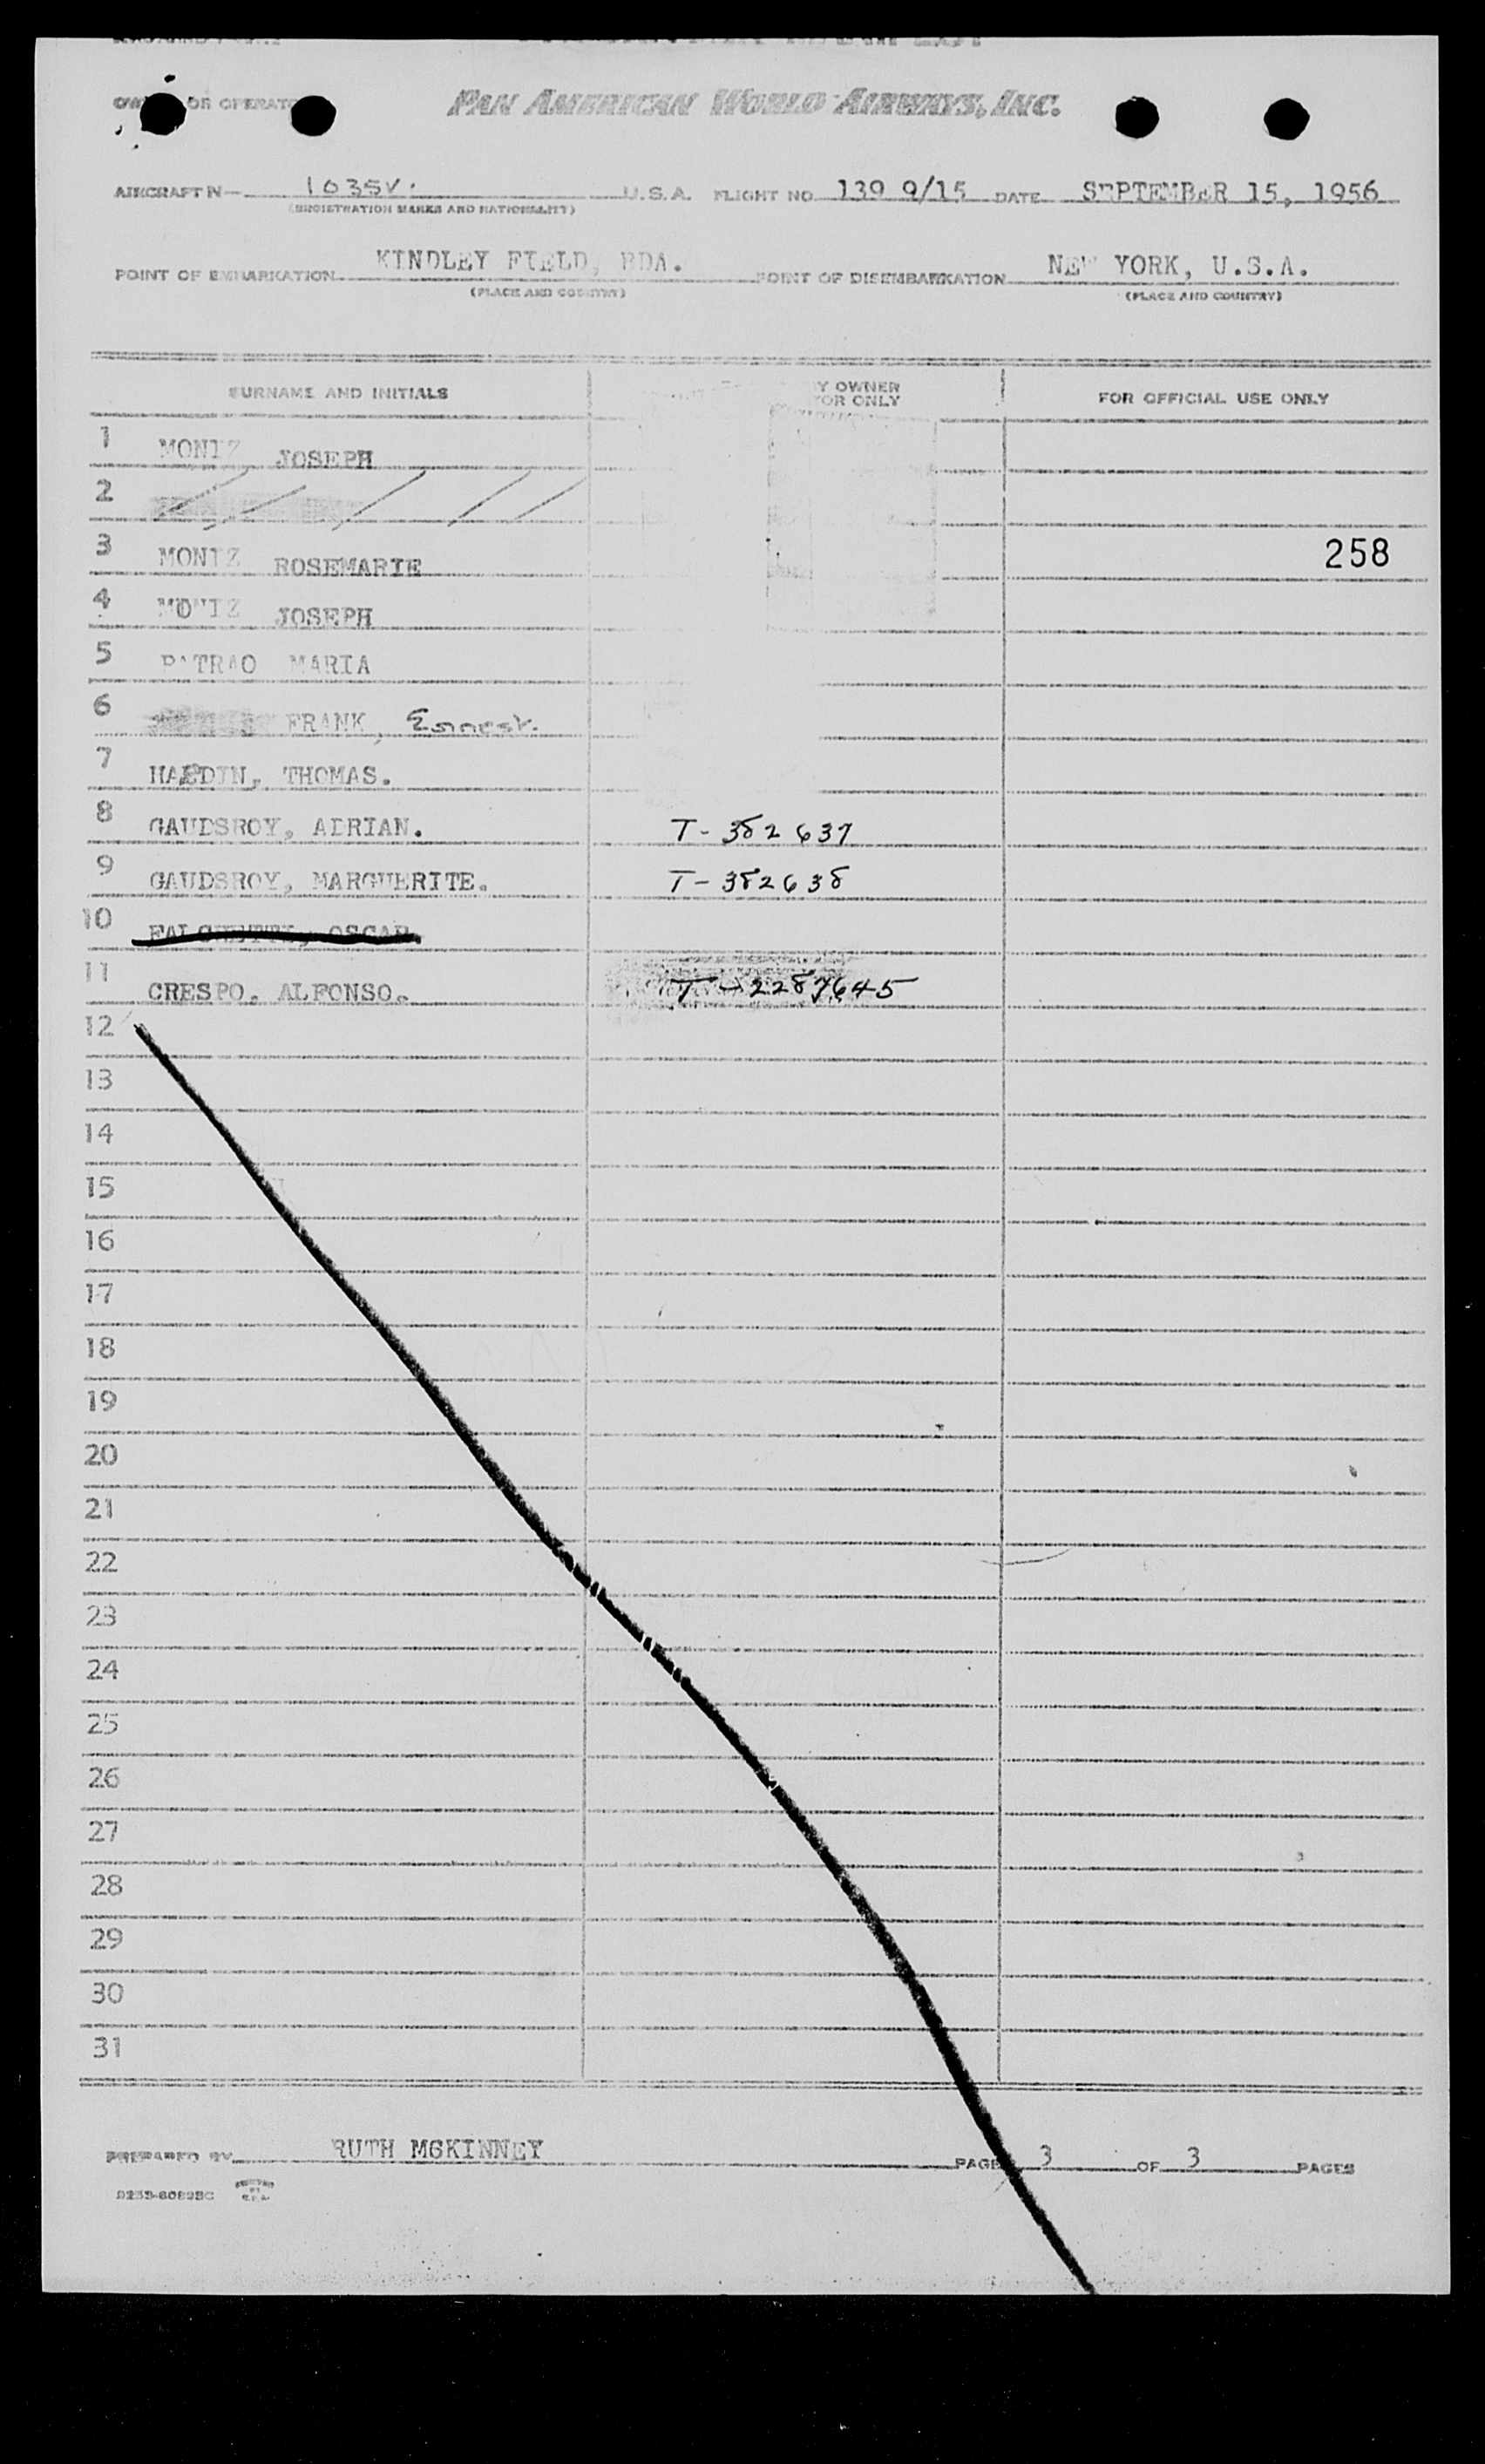 OR OPERATO
PAN AMERICAN WORLD AIRWAYS, INC.
AIRCRAFT N- 1035V. U.S.A. FLIGHT NO. 139 9/15 DATE SEPTEMBER 15, 1956
(REGISTRATION MARKS AND NATIONALITY)
POINT OF EMBARKATION KINDLEY FIELD, BDA. POINT OF DISEMBARKATION NEW YORK, U.S.A.
(PLACE AND COUNTRY) (PLACE AND COUNTRY)
SURNAME AND INITIALS Y OWNER OR ONLY FOR OFFICIAL USE ONLY
1 MONIZ JOSEPH
2
3 MONIZ ROSEMARIE 258
4 MONIZ JOSEPH
5 PATRAO MARIA
6 FRANK, Ernest.
7 HARDIN, THOMAS.
8 GAUDSROY, ADRIAN. T-382637
9 GAUDSROY, MARGUERITE. T-382638
10 OSCAR.
11 CRESPO. ALFONSO. T-2287645
12
13
14
15
16
17
18
19
20
21
22
23
24
25
26
27
28
29
30
31
PREPARED BY RUTH MGKINNEY PAGE 3 OF 3 PAGES